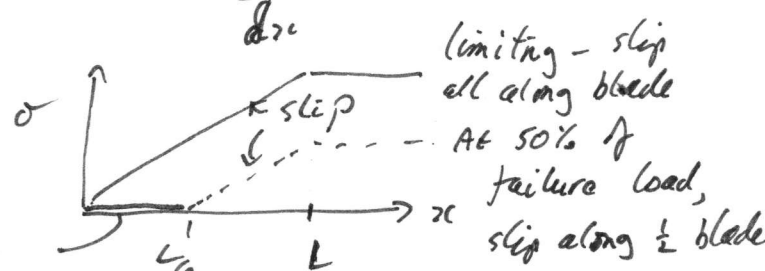 dx
limiting – slip
all along blade
σ
slip
At 50% of
failure load,
x
slip along ½ blade
L